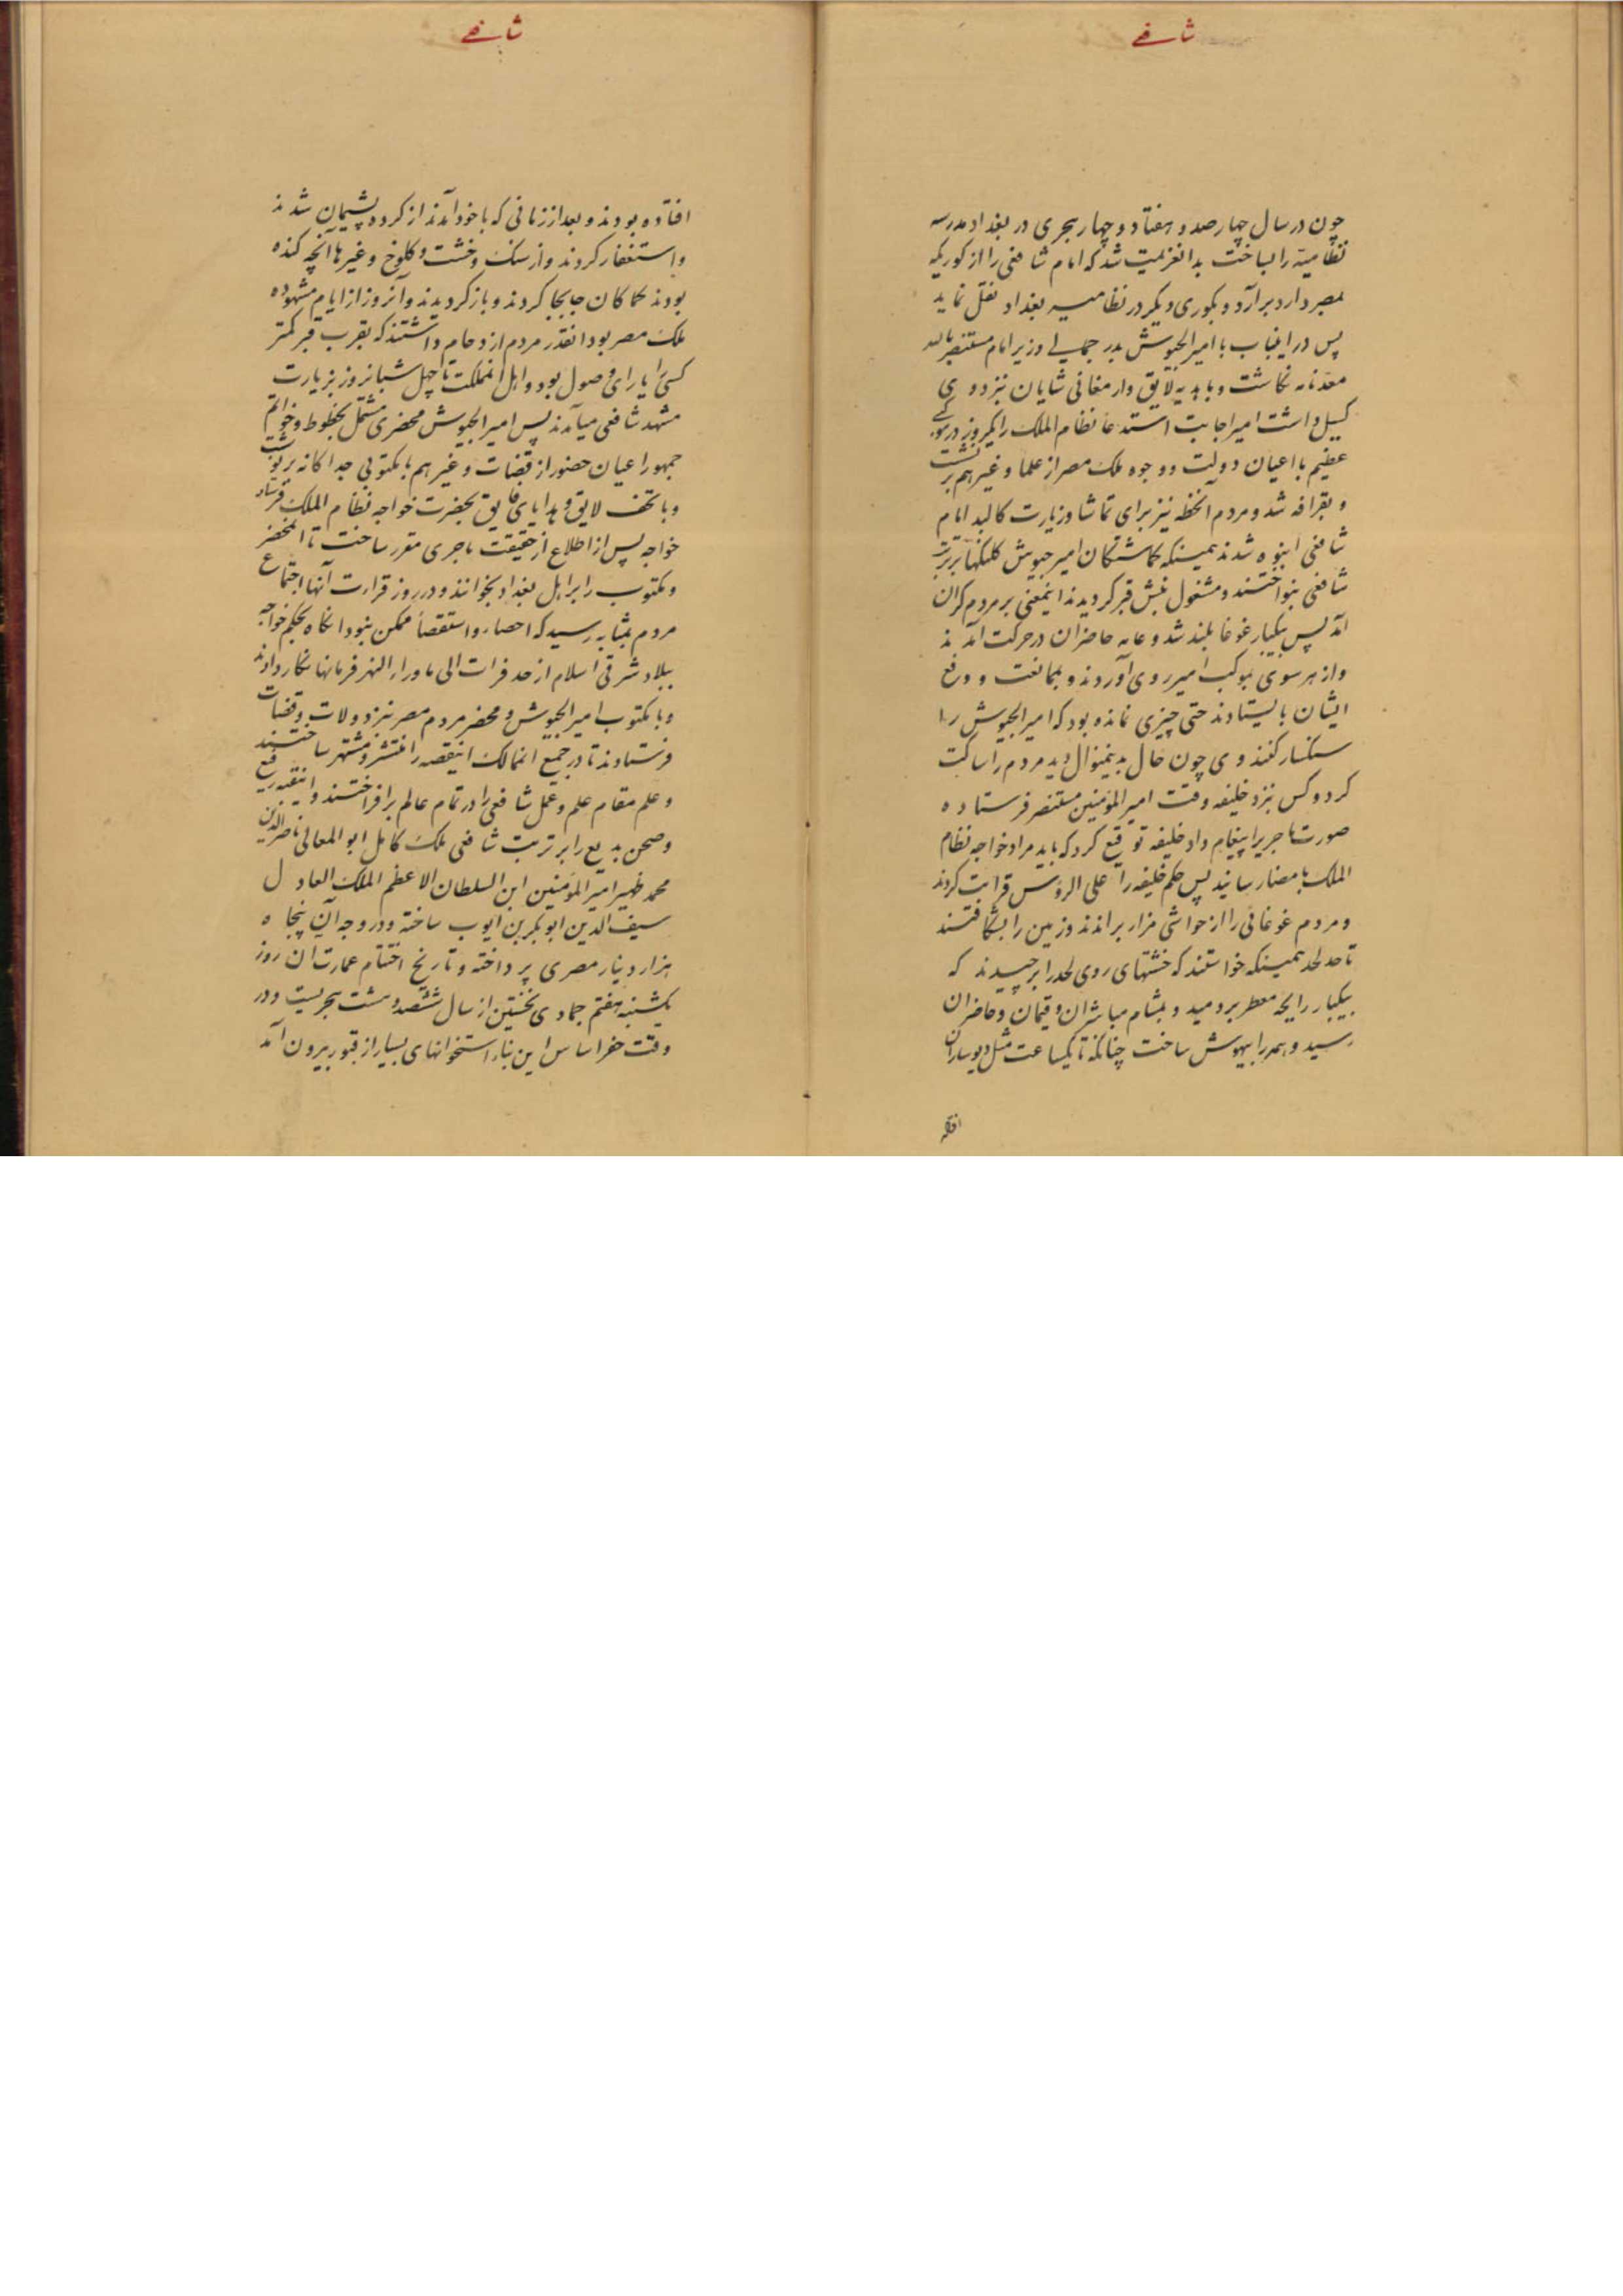 شافعی
چون در سال چهارصد و هفتاد و چهار هجری در بغداد مدرسه
نظامیه را بساخت بدانعزیمت شد که امام شافعی را از کوریکه
بمصر دارد برآرد و بکوری دیکر در نظامیه بغداد نقل نماید
پس در اینباب با امیر الجیوش بدر جمالی وزیر امام مستنصر بالله
نکاشت و با هدیه لایق و ارمغانی شایان نزد وی
کسیل داشت امیر اجابت استدعا نظام الملک را یکروز در موکبی
عظیم با اعیان دولت و وجوه ملک مصر از علما و غیرهم برنشست
و بقرافه شد و مردم آنخطه نیز برای تماشا و زیارت کالبد امام
شافعی انبوه شدند همینکه کماشتکان امیر جیوش کلنکها بر تربت
شافعی بنواختند و مشغول نبش قبر کردیدند اینمعنی بر مردم کران
آمد پس بیکبار غوغا بلند شد و عامه حاضران در حرکت آمدند
و از هر سوی بموکب امیر روی آوردند و بممانعت و دفع
ایشان بایستادند حتی چیزی نمانده بود که امیر الجیوش را
سنکسار کنند وی چون حال بدینمنوال دید مردم را ساکت
کرد و کس نزد خلیفه وقت امیر المؤمنین مستنصر فرستاده
صورت ماجری را پیغام داد خلیفه توقیع کرد که باید مراد خواجه نظام
الملک بامضا رسانید پس حکم خلیفه را علی الرؤس قرائت کردند
و مردم غوغائی را از حواشی مزار براندند و زمین را بشکافتند
تا حد لحد همینکه خواستند که خشتهای روی لحد را برچیدند که
بیکبار رایحه معطر بردمید و بمشام مباشران و قیمان و حاضران
رسید و همه را بیهوش ساخت چنانکه تا یکساعت مثل دیوساران
افتاده
شافعی
افتاده بودند و بعد از زمانی که باخود آمدند از کرده پشیمان شدند
و استغفار کردند و از سنک و خشت و کلوخ و غیرها آنچه کنده
بودند کماکان جابجا کردند و بازکردیدند و آنروز از ایام مشهوده
ملک مصر بود آنقدر مردم ازدحام داشتند که بقرب قبر کمتر
کسی را یارای وصول بود و اهل آنمملکت تا چهل شبانروز بزیارت
مشهد شافعی میآمدند پس امیر الجیوش محضری مشتمل بخطوط و خواتم
جمهور اعیان حضور از قضات و غیرهم با مکتوبی جداکانه برنوشت
و با تحف لایق و هدایای فایق بحضرت خواجه نظام الملک فرستاد
خواجه پس از اطلاع از حقیقت ماجری مقرر ساخت تا آنمحضر
و مکتوب را بر اهل بغداد بخوانند و در روز قرائت آنها اجتماع
مردم بمثابه رسید که احصار و استقصا ممکن نبود آنکاه بحکم خواجه
ببلاد شرقی اسلام از حد فرات الی ماوراء النهر فرمانها نکار دادند
و با مکتوب امیر الجیوش و محضر مردم مصر نزد ولات و قضات
فرستادند تا در جمیع آنممالک اینقصه را منتشر و مشتهر ساختند
و علم مقام علم و عمل شافعی را در تمام عالم برافراختند و اینقبه رفیع
و صحن بدیع را بر تربت شافعی ملک کامل ابو المعالی ناصر الدین
محمد ظهیر امیر المؤمنین ابن السلطان الاعظم الملک العادل
سیف الدین ابوبکر بن ایوب ساخته و در وجه آن پنجاه
هزار دینار مصری پرداخته و تاریخ اختتام عمارت آن روز
یکشنبه هفتم جمادی نخستین از سال ششصد و هشت هجریست و در
وقت حفر اساس این بناء استخوانهای بسیار از قبور بیرون آمد